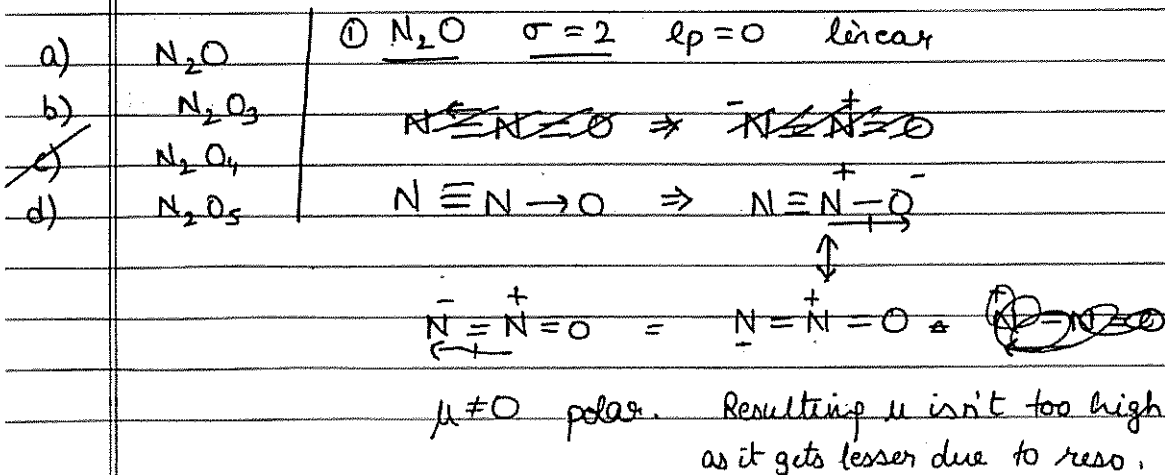 a) N₂O
b) N₂O₃
c) N₂O₄
d) N₂O₅
① N₂O σ = 2 lp = 0 linear
N ≡ N = O ⇒ N⁻ = N⁺ = O
N ≡ N → O ⇒ N ≡ N⁺ − O⁻
↕
N⁻ = N⁺ = O = N⁻ = N⁺ = O
μ ≠ 0 polar. Resulting μ isn't too high
as it gets lesser due to reso.